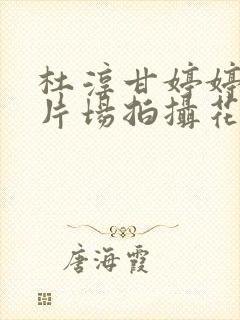 杜淳甘婷婷
片場拍攝花
唐海霞